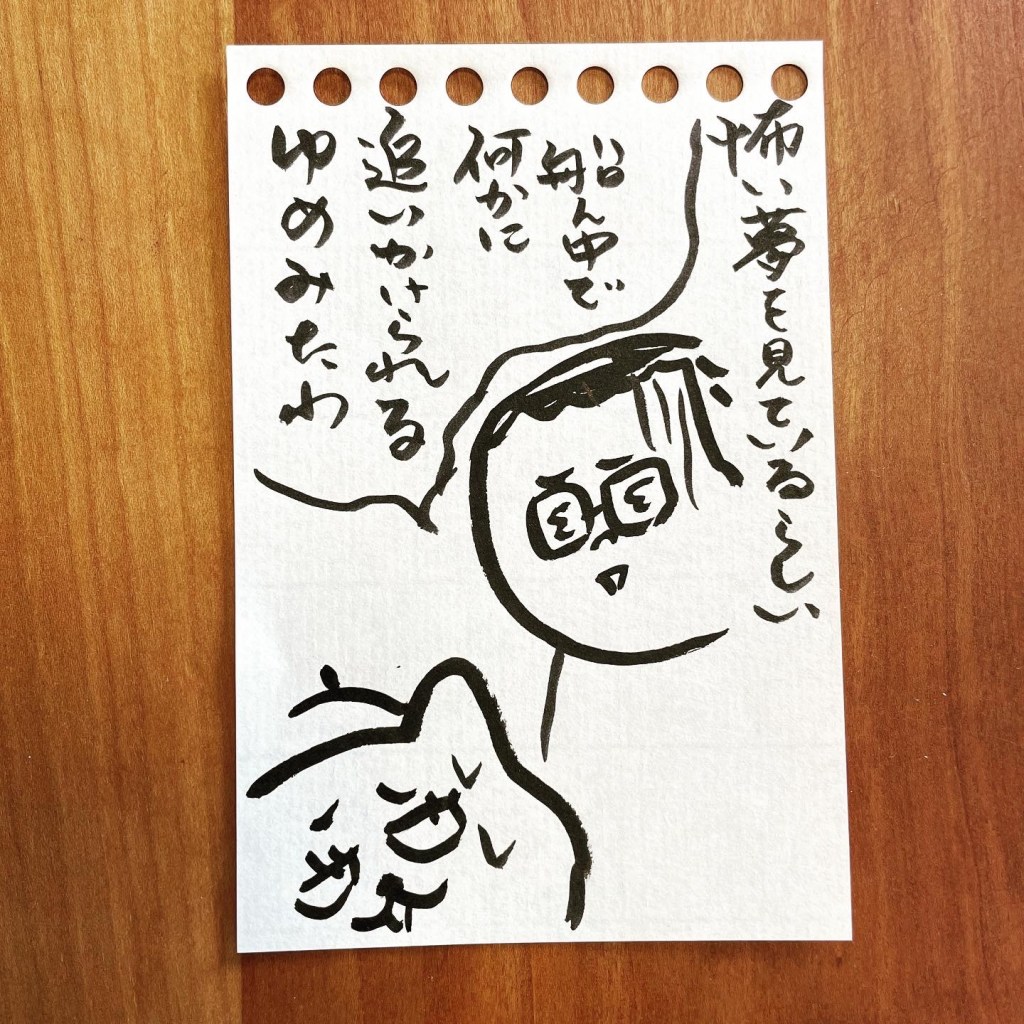 怖い夢を見ているらしい
船ん中で
何かに
追いかけられる
ゆめみたわ